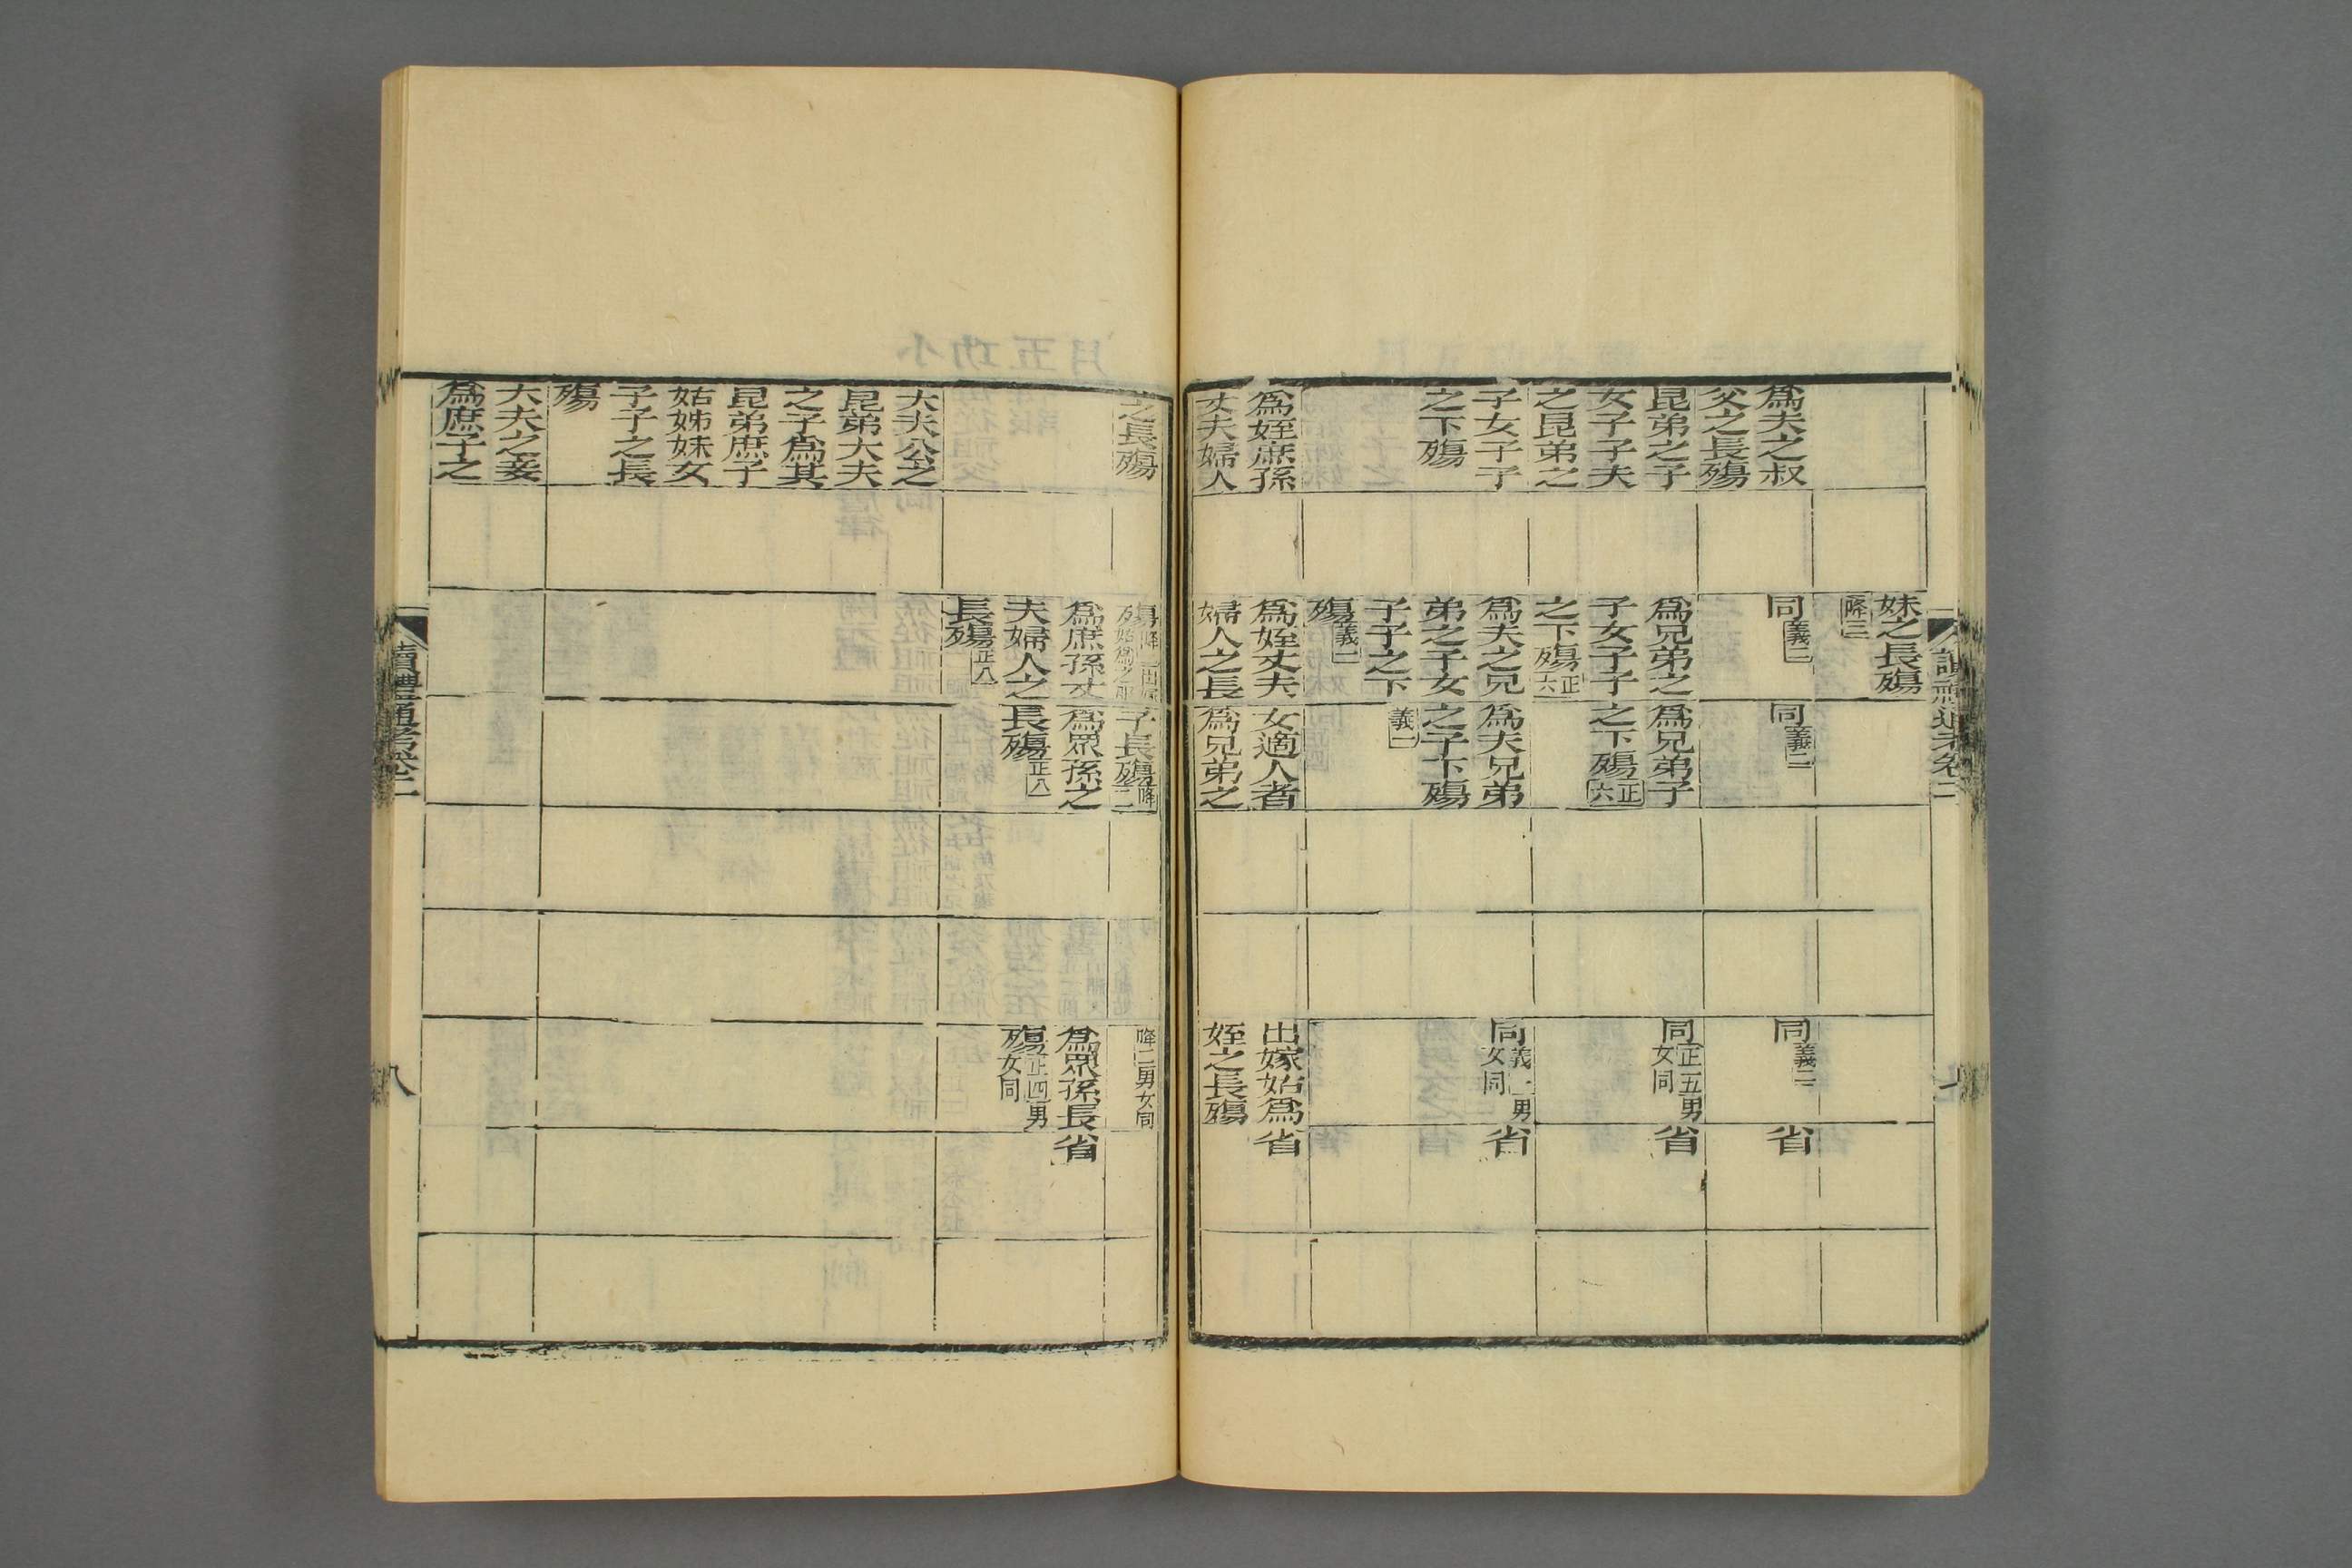 妹之長殤
降三
爲夫之叔
父之長殤
同義二
同義二
同義二
省
昆弟之子
女子子夫
之昆弟之
子女子子
之下殤
爲兄弟之
子女子子
之下殤正六
爲兄弟子
之下殤正六
同正五男女同
省
爲夫之兄
弟之子女
子子之下
殤義一
爲夫兄弟
之子下殤
義一
同義一男女同
省
爲姪庶孫
丈夫婦人
之長殤
爲姪丈夫
婦人之長
女適人者
爲兄弟之
子長殤降二
出嫁姑爲
姪之長殤
降二男女同
省
爲庶孫丈
夫婦人之
長殤正八
爲眾孫之
長殤正八
爲眾孫長
殤正四男女同
省
大夫公之
昆弟大夫
之子爲其
昆弟庶子
姑姊妹女
子子之長
殤
大夫之妾
爲庶子之
讀禮通考卷二
八